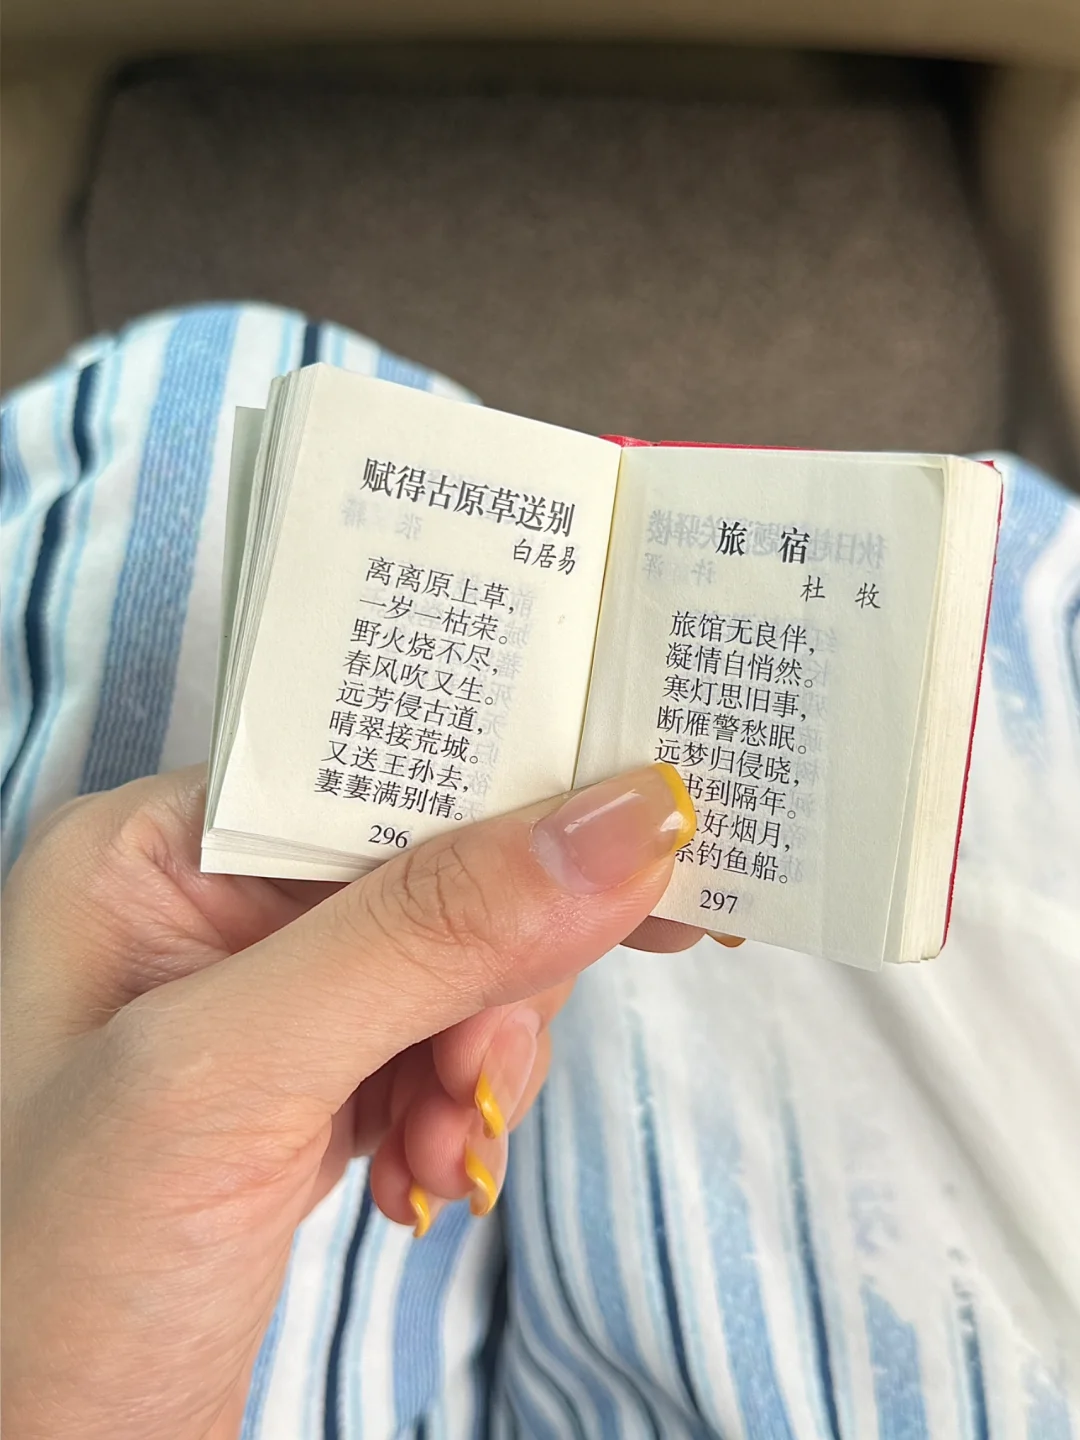 赋得古原草送别
白居易
离离原上草，
一岁一枯荣。
野火烧不尽，
春风吹又生。
远芳侵古道，
晴翠接荒城。
又送王孙去，
萋萋满别情。
296
旅 宿
杜 牧
旅馆无良伴，
凝情自悄然。
寒灯思旧事，
断雁警愁眠。
远梦归侵晓，
书到隔年。
好烟月，
系钓鱼船。
297